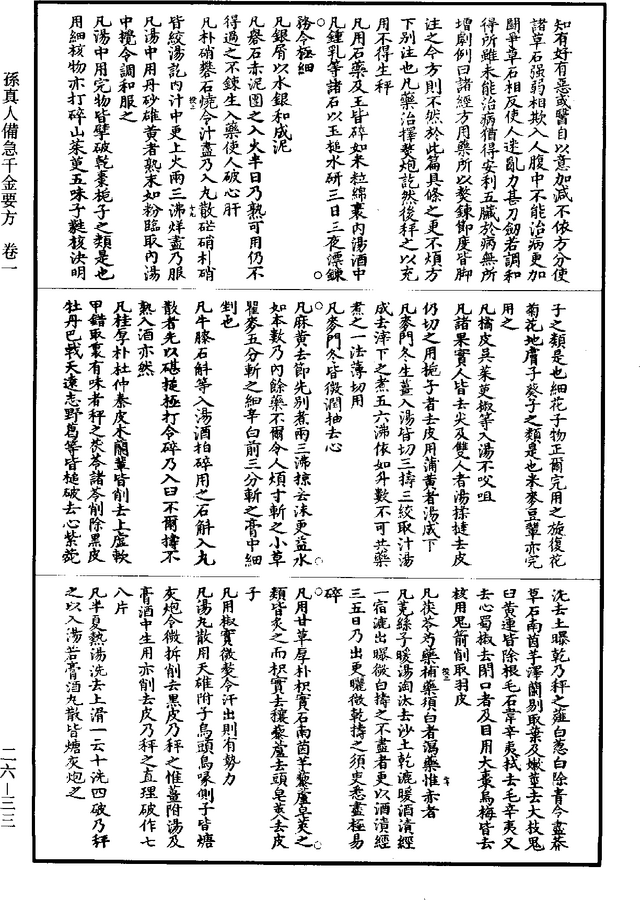 孫真人備急千金要方 卷一
知有好有惡或醫自以意加減不依方分使
諸草石强弱相欺入人腹中不能治病更加
鬪爭草石相反使人迷亂力甚刀劒若調和
得所雖未能治病猶得安利五臟於病無所
增劇例曰諸經方用藥所以熬鍊節度皆脚
注之今方則不然於此篇具條之更不煩方
下別注也凡藥治擇熬炮訖然後秤之以充
用不得生秤
凡用石藥及玉皆碎如米粒綿裹内湯酒中
凡鍾乳等諸石以玉槌水研三日三夜漂鍊
務令極細
凡銀屑以水銀和成泥
凡礜石赤泥團之入火半日乃熟可用仍不
得過之不鍊生入藥使人破心肝
凡朴硝礬石燒令汁盡乃入丸散芒硝朴硝
皆絞湯訖内汁中更上火兩三沸烊盡乃服
凡湯中用丹砂雄黄者熟末如粉臨取内湯
中攪令調和服之
凡湯中用完物皆擘破乾棗梔子之類是也
用細核物亦打碎山茱萸五味子蕤核決明
子之類是也細花子物正爾完用之旋復花
菊花地膚子葵子之類是也米麥豆輩亦完
用之
凡橘皮吳茱萸椒等入湯不㕮咀
凡諸果實人皆去尖及雙人者湯揉撻去皮
仍切之用梔子者去皮用蒲黄者湯成下
凡麥門冬生薑入湯皆切三擣三絞取汁湯
成去滓下之煮五六沸依如升數不可共藥
煮之一法薄切用
凡麥門冬皆微潤抽去心
凡麻黄去節先別煮兩三沸掠去沫更益水
如本數乃内餘藥不爾令人煩寸斬之小草
瞿麥五分斬之細辛白前三分斬之膏中細
剉也
凡牛膝石斛等入湯酒拍碎用之石斛入丸
散者先以碪槌極打令碎乃入臼不爾擣不
熟入酒亦然
凡桂厚朴杜仲秦皮木蘭輩皆削去上虛軟
甲錯取裏有味者秤之茯苓諸苓削除黑皮
牡丹巴戟天遠志野葛等皆槌破去心紫菀
洗去土曝乾乃秤之薤白葱白除青令盡莽
草石南茵芋澤蘭剔取葉及嫩莖去大枝鬼
臼黄連皆除根毛石韋辛夷拭去毛辛夷又
去心蜀椒去閉口者及目用大棗烏梅皆去
核用鬼箭削取羽皮
凡茯苓芍藥補藥須白者瀉藥惟赤者
凡菟絲子暖湯淘汰去沙土乾漉暖酒漬經
一宿漉出曝微白擣之不盡者更以酒漬經
三五日乃出更曬微乾擣之須臾悉盡極易
碎
凡用甘草厚朴枳實石南茵芋藜蘆皂莢之
類皆炙之而枳實去穰藜蘆去頭皂莢去皮
子
凡用椒實微熬令汗出則有勢力
凡湯丸散用天雄附子烏頭烏喙側子皆塘
灰炮令微拆削去黑皮乃秤之惟薑附湯及
膏酒中生用亦削去皮乃秤之直理破作七
八片
凡半夏熱湯洗去上滑一云十洗四破乃秤
之以入湯若膏酒丸散皆塘灰炮之
二六－三三